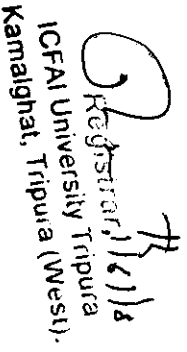 Registrar, 11/6/18
ICFAI University Tripura
Kamalghat, Tripura (West).